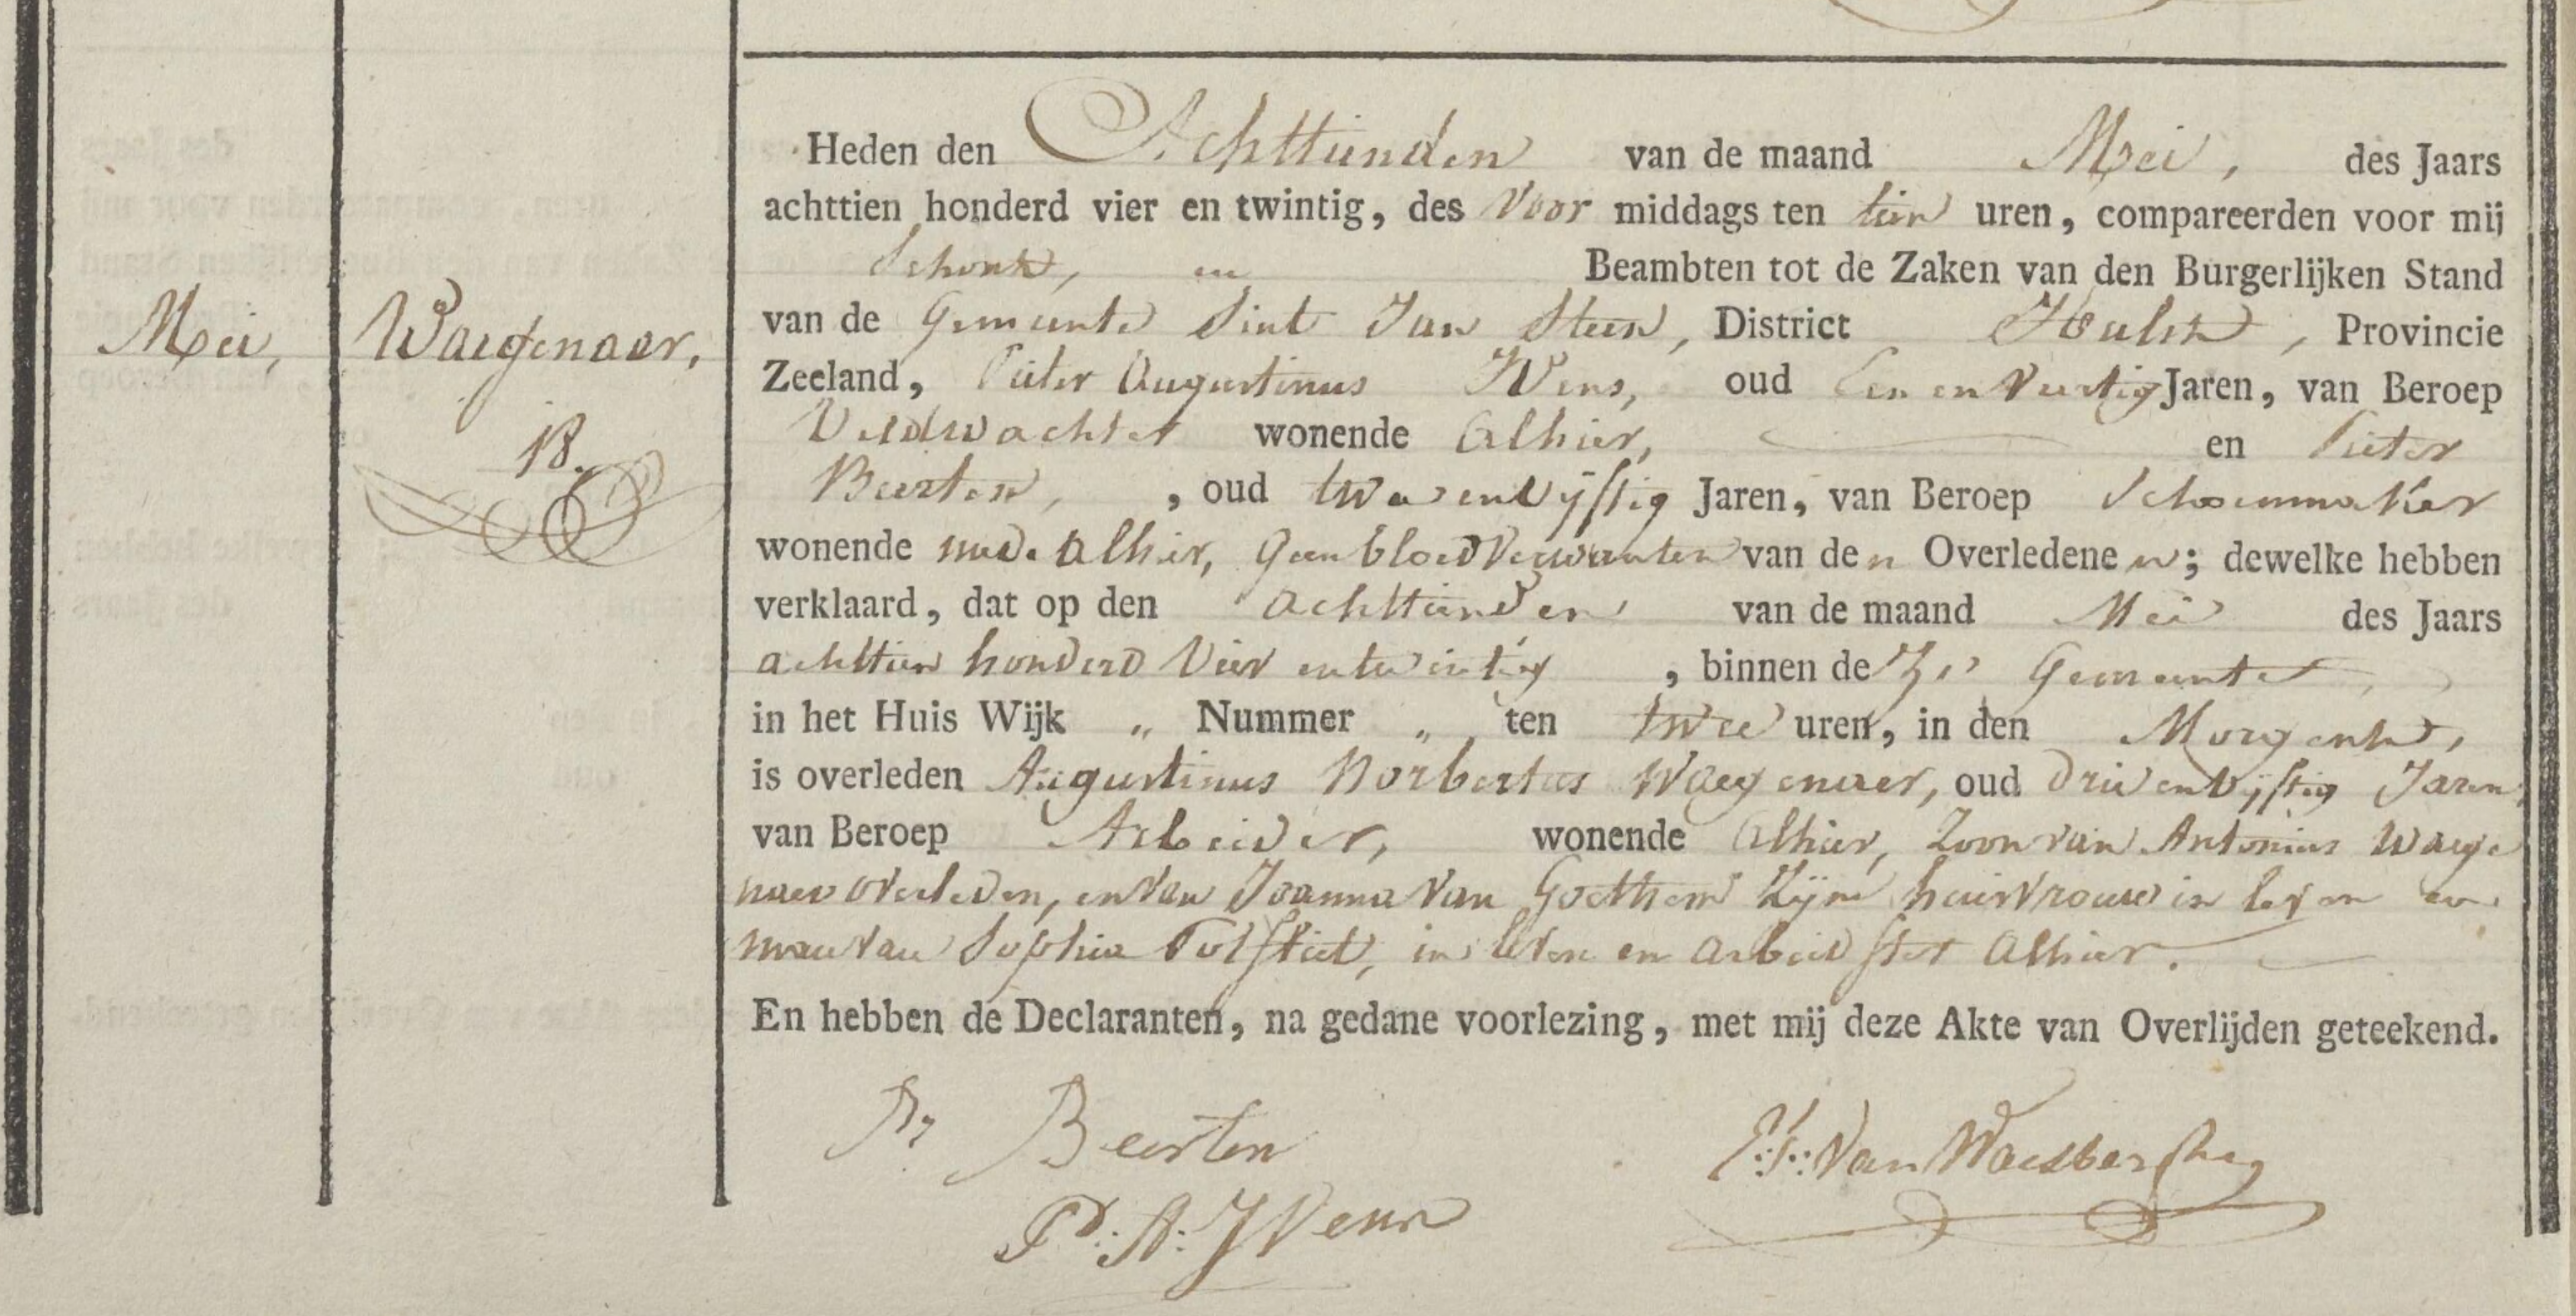 Heden den Achttienden van de maand Mei, des Jaars
achttien honderd vier en twintig, des Voor middags ten tien uren, compareerden voor mij
Schout, en Beambten tot de Zaken van den Burgerlijken Stand
van de Gemeente Sint Jan Steen, District Hulst, Provincie
Mei, Waegenaer,
Zeeland, Pieter Augustinus Wens, oud Een en Veertig Jaren, van Beroep
Veldwachter wonende Alhier, en Pieter
18.
Beerten, , oud twee en vijftig Jaren, van Beroep Schoenmaker
wonende mede Alhier, Geen bloedverwanten van den Overledenen; dewelke hebben
verklaard, dat op den achttienden van de maand Mei des Jaars
achttien honderd Vier en twintig , binnen deze Gemeente,
in het Huis Wijk „ Nummer „ ten twee uren, in den Morgend,
is overleden Augustinus Norbertus Waegenaer, oud drie en vijftig Jaren,
van Beroep Arbeider, wonende Alhier, Zoon van Antonius Waege
naer overleden, en van Joanna Van Goethem Zijne huisvrouw in leven en
man van Sophia in leven en arbeidster Alhier.
En hebben de Declaranten, na gedane voorlezing, met mij deze Akte van Overlijden geteekend.
Pr Beerten
Van Waesberghe
Pr: A: Wens